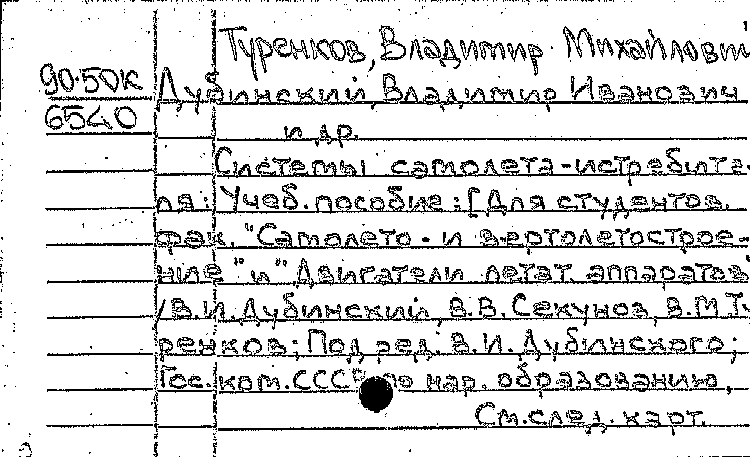 Туренков, Владимир Михайлович
90-50К Дубинский, Владимир Иванович
6540 и др.
Системы самолета-истребите-
ля: Учеб. пособие: [Для студентов
фак. "Самолето- и вертолетострое-
ние" и "Двигатели летат. аппаратов"
/В.И. Дубинский, В.В. Секунов, В.М. Ту-
ренков; Под ред. В.И. Дубинского;
Гос. ком. СССР по нар. образованию,
См. след. карт.